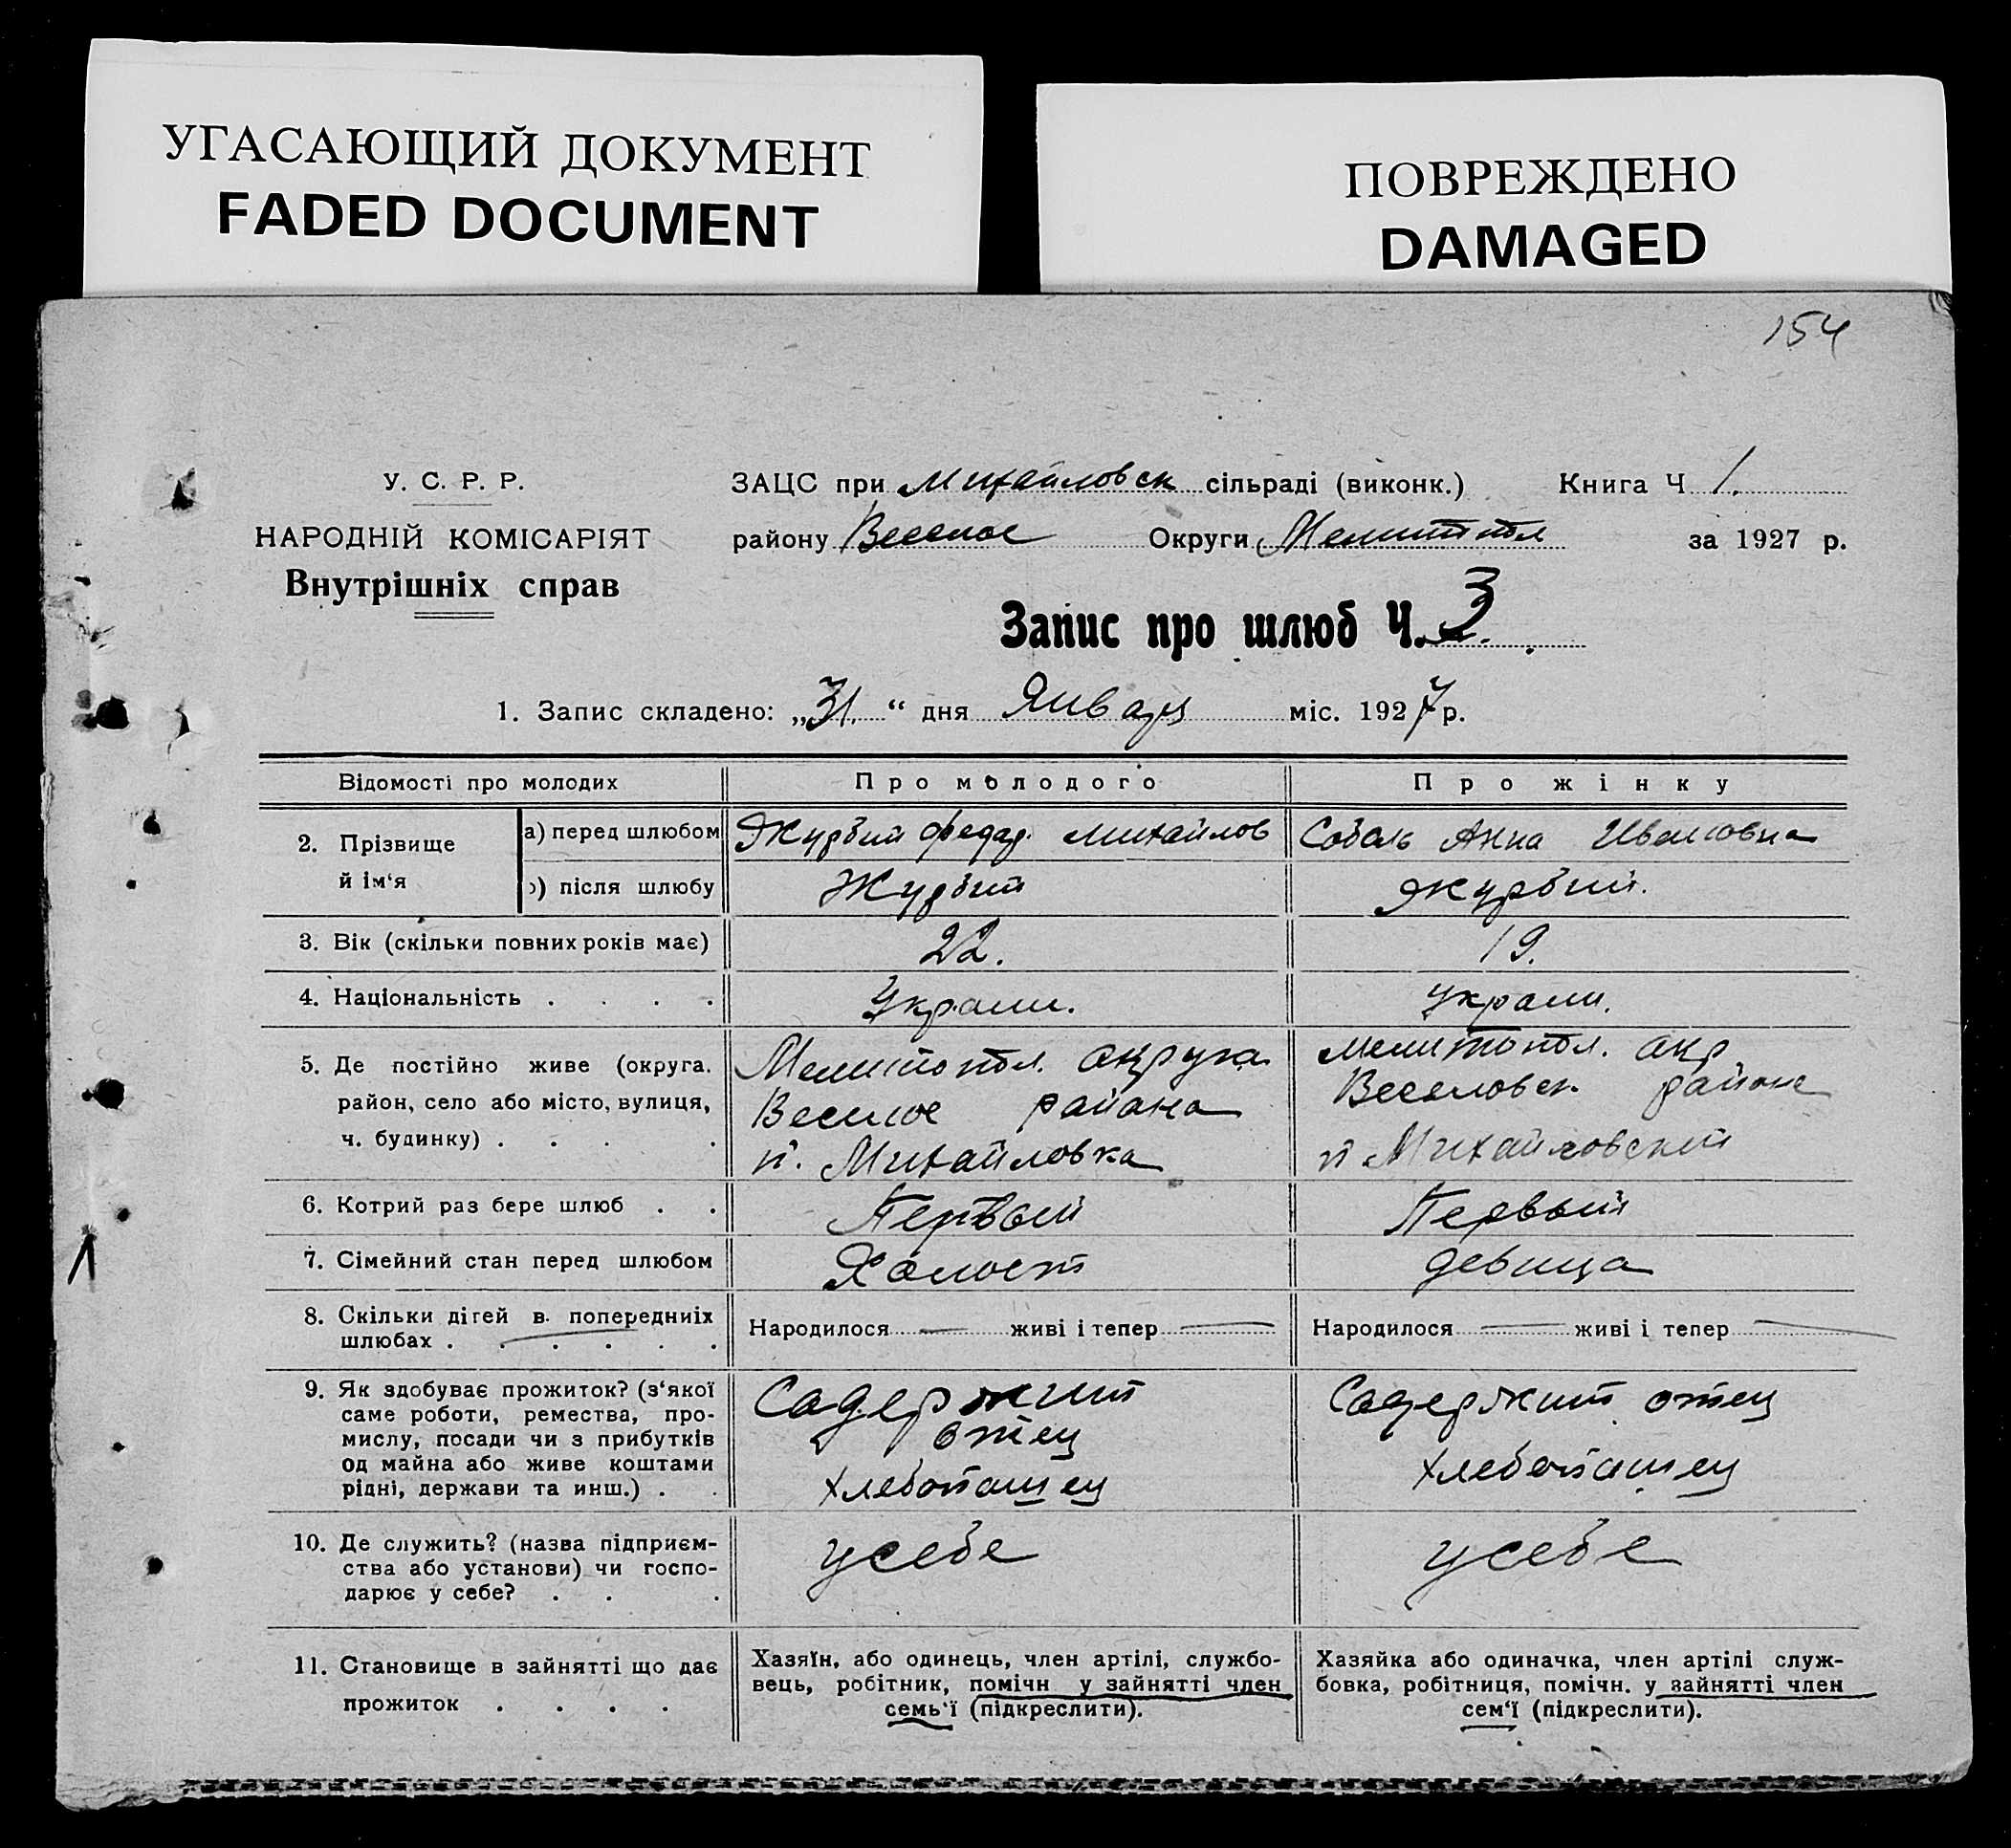 УГАСАЮЩИЙ ДОКУМЕНТ
FADED DOCUMENT
ПОВРЕЖДЕНО
DAMAGED
154
У. С. Р. Р.
НАРОДНІЙ КОМІСАРІЯТ
Внутрішніх справ
ЗАЦС при Михайловск сільраді (виконк.) Книга Ч 1.
району Веселое Округи Мелитопол за 1927 р.
Запис про шлюб Ч. 3
1. Запис складено: „31.“ дня Января міс. 1927 р.
Відомості про молодих Про молодого Про жінку
2. Прізвище й ім‘я
а) перед шлюбом Журбий Федар. Михайлов Соболь Анна Ивановна
) після шлюбу Журбий Журбий.
3. Вік (скільки повних років має) 22. 19.
4. Національність . . . . Украин. Украин.
5. Де постійно живе (округа. район, село або місто, вулиця, ч. будинку) . . . .
Мелитопол. округа
Веселое района
п. Михайловка
Мелитопол. окр.
Веселовск района
п Михайловский
6. Котрий раз бере шлюб . . Первый Первый
7. Сімейний стан перед шлюбом Холост девица
8. Скільки дітей в попередниіх
шлюбах . . . . . .
Народилося — живі і тепер —
Народилося — живі і тепер —
9. Як здобуває прожиток? (з‘якої
саме роботи, ремества, про-
мислу, посади чи з прибутків
од майна або живе коштами
рідні, держави та инш.) . .
Садержит
отец
хлебопашец
Садержит отец
хлебопашец
10. Де служить? (назва підприєм-
ства або установи) чи госпо-
дарює у себе? . . .
усебе
усебе
11. Становище в зайнятті що дає
прожиток . . . .
Хазяїн, або одинець, член артілі, службо-
вець, робітник, помічн у зайнятті член
семь‘ї (підкреслити).
Хазяйка або одиначка, член артілі служ-
бовка, робітниця, помічн. у зайнятті член
сем‘ї (підкреслити).